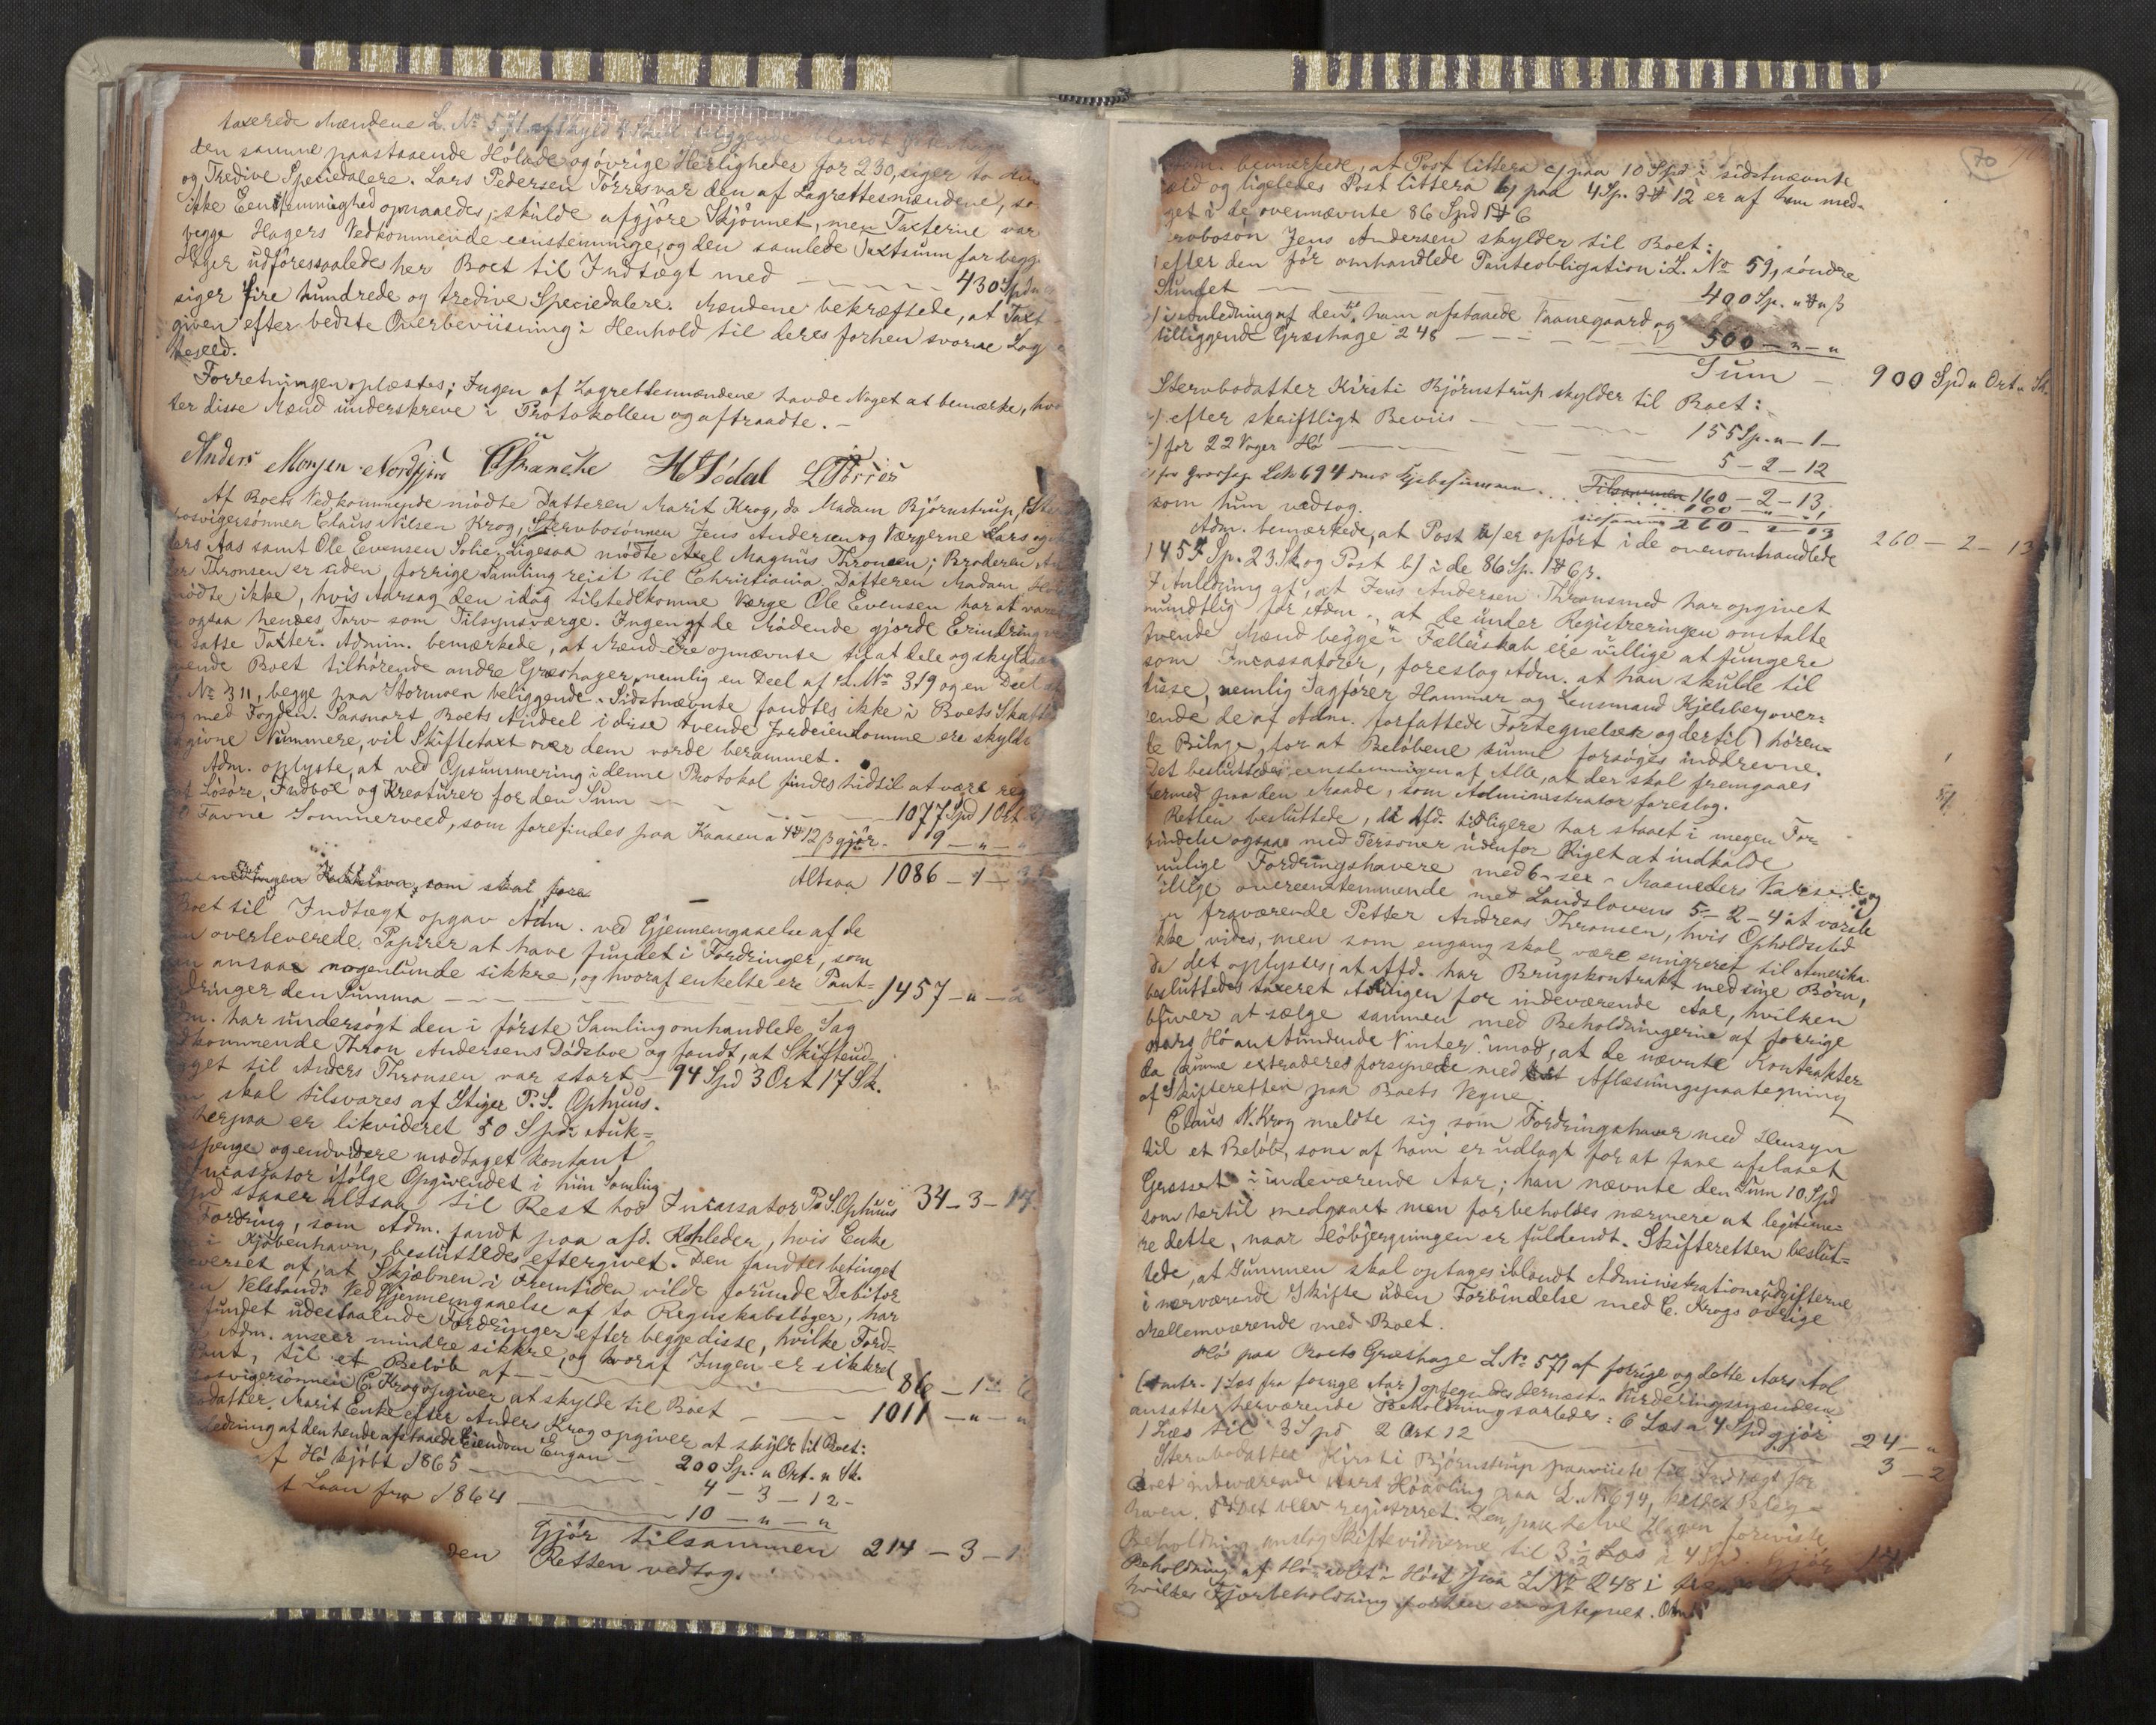 taxerede Mændene L. No 571 af Skyld beliggende
den samme paastaaende Hölade og övrige Herligheder for 230, siger to
og Tredive Speciedalere. Lars Pedersen Törres var den af Lagrettesmændene, so
ikke Eenstemmighed opnaaedes, skulde afgjöre Skjönnet, men Taxterne var
begge Hagers Vedkommende eenstemmige, og den samlede Taxtsum for begge
Hager udföres saaledes her Boet til Indtægt med — 430 Spd
siger fire hundrede og tredive Speciedalere. Mændene bekræftede, at Taxt
given efter bedste Overbeviisning i Henhold til deres forhen svorne Lag
teseed.
Forretningen oplæstes; Ingen af Lagrettesmændene havde Noget at bemærke, hvo
ter disse Mænd underskreve i Protokollen og aftraadte. —
Anders Monsen Nordfjern HSödal LTörres
Af Boets Vedkommende mödte Datteren Marit Krog, da Madam Björnstrup,
bosvigersönnen Claus Nilsen Krog, Stervbosönnen Jens Andersen og Værgerne Lars
Aas samt Ole Evensen Solie. Ligesaa mödte Axel Magnus Thronsen; Broderen
Thronsen er siden forrige Samling reist til Christiania. Datteren Madam
mödte ikke, hvis Aarsag den idag tilstedkomne Værge Ole Evensen har at vare
ogsaa hendes Tarv som Tilsynsværge. Ingen af de Mödende gjorde Erindring
satte Taxter. Admin. bemærkede, at Mænd ere opnævnte til at dele og skyld
ende Boet tilhörende andre Græshager, nemlig en Deel af L. No 319 og en Deel
No 311, begge paa Stormoen beliggende. Sidstnævnte fandtes ikke i Boets Skatte
og med Fogden. Saasnart Boets Andeel i disse tvende Jordeiendomme ere skyld
givne Nummere, vil Skiftetaxt over dem vorde berammet.
Adm. oplyste, at ved Opsummering i denne Protokol findes hidtil at være reg
Lösöre, Indboe og Kreaturer for den Sum — 1077 Spd 1 Ort
Favne Sommerveed, som forefindes paa Kaasen a 4 12 ß gjör — 9 — " — "
Altsaa 1086 — 1 —
som skal före
Boet til Indtægt opgav Adm. ved Gjennemgaaelse af de
overleverede Papirer at have fundet i Fordringer, som
ansaae nogenlunde sikkre, og hvoraf enkelte ere Pant=
dringer den Summa — 1457 — " —
har undersögt den i förste Samling omhandlede Sag
dkommende Thron Andersens Dödsboe og fandt, at Skifteud=
get til Anders Thronsen var stort — 94 Spd 3 Ort 17 Sk.
skal tilsvares af Stiger P. S. Ophuus.
herpaa er likvideret 50 Spd. Auk=
spenge og endvidere modtaget kontant
Incassator ifölge Opgivendet i hiin Samling
staaer altsaa til Rest hos Incassator P. S. Ophuus 34 — 3 — 17
Fordring, som Adm. fandt paa afd. Kohleder, hvis Enke
i Kjöbenhavn, besluttedes eftergivet. Den fandtes betinget
verset af, at Skjæbnen i Fremtiden vilde forunde Debitor
Velstand. Ved Gjennemgaaelse af to Regnskabsböger, har
fundet udestaaende Fordringer efter begge disse, hvilke Ford=
Adm. anseer mindre sikkre, og hvoraf Ingen er sikkret
Pant, til et Belöb af — 86 — 1 — 6
svigersönnen C. Krog opgiver at skylde til Boet — 1011 — " — "
datter Marit Enke efter Anders Krog opgiver at skylde til Boet:
ledning af den hende afstaaede Eiendom Engan — 200 Sp. " Ort. " Sk.
f Hö kjöbt 1865 — 4 — 3 — 12 —
t Laan fra 1864 — 10 — " — "
Gjör tilsammen 214 — 3 — 1
den Retten vedtog.
70
Adm. bemærkede, at Post littera c) paa 10 Spd i sidstnævnte
Gjeld og ligeledes Post littera b) paa 4 Sp. 3 12 er af ham med=
get i de ovennævnte 86 Spd 1 6
rvbosön Jens Andersen skylder til Boet:
efter den för omhandlede Panteobligation i L. No 59, söndre
Sundet — 400 Sp. " "ß
i Anledning af den til ham afstaaede Vaanegaard og
tilliggende Græshage 248 — 500 — " — "
Sum — 900 Spd " Ort " Sk.
Stervbodatter Kirsti Björnstrup skylder til Boet:
efter skriftligt Beviis — 155 Sp. " — 1 —
for 22 Voger Hö — 5 — 2 — 12
for Græshage L No 694 Kjøbesummen Tilsammen 160 — 2 — 13
som hun vedtog. 100 — " — "
tilsammen 260 — 2 — 13 260 — 2 — 13
Adm. bemærkede, at Post a) er opfört i de ovenomhandlede
1457 Sp. 23 Sk. og Post b) i de 86 Sp. 1 6 ß.
I Anledning af, at Jens Andersen Thronsmed har opgivet
mundtlig for Adm., at de under Registreringen omtalte
tvende Mænd begge i Fælleskab ere villige at fungere
som Incassatorer, foreslog Adm. at han skulde til
disse, nemlig Sagförer Hammer og Lensmand Kjelsberg over=
ende de af Adm. forfattede Fortegnelser og dertil hören=
de Bilage, for at Belöbene kunne forsöges inddrevne.
Det besluttedes eenstemmigen af Alle, at der skal fremgaaes
hermed paa den Maade, som Administrator foreslog.
Retten besluttede, da Afd. tidligere har staaet i megen For=
bindelse ogsaa med Personer udenfor Riget at indkalde
mulige Fordringshavere med 6 — sex — Maaneders Varsel og
tillige overeenstemmende med Landslovens 5 — 2 — 4 at varsle
fraværende Petter Andreas Thronsen, hvis Opholdssted
ikke vides, men som engang skal være emigreret til Amerika.
Da det oplystes, at Afd. har Brugskontrakt med sine Börn,
besluttedes taxeret Avlingen for indeværende Aar, hvilken
bliver at sælge sammen med Beholdningerne af forrige
Aars Hö anstundende Vinter imod, at de nævnte Kontrakter
da kunne extraderes forsynede med Aflæsningspaategning
af Skifteretten paa Boets Vegne.
Claus N. Krog meldte sig som Fordringshaver med Hensyn
til et Belöb, som af ham er udlagt for at faae afslaaet
Græsset i indeværende Aar; han nævnte den Sum 10 Spd
som hertil medgaaet men forbeholdes nærmere at legitime=
re dette, naar Höbjergningen er fuldendt. Skifteretten beslut=
tede, at Summen skal optages iblandt Administrationsudgifterne
i nærværende Skifte uden Forbindelse med C. Krogs övrige
Mellemværende med Boet.
Hö paa Boets Græshage L No 571 af forrige og dette Aars Avl
(omtr. 1 Læs fra forrige Aar) optegnedes dernæst. Vurderingsmændene
ansatte herværende Beholdning saaledes: 6 Læs a 4 Spd gjör 24 — "
1 Læs til 3 Spd 2 Ort 12 — 3 — 2
Stervbodatter Kirsti Björnstrup paaviiste til Indtægt for
Boet indeværende Aars Höavling paa L No 694, kaldet
haven. Det blev registreret. Den paa selve Hagen foreviste
Beholdning anslog Skiftevidnerne til 3½ Læs a 4 Spd. Gjör 14
Beholdning af Hö avlet i Höst paa L No 248 i
hvilkes Fjorbeholdning forhen er optegnet.